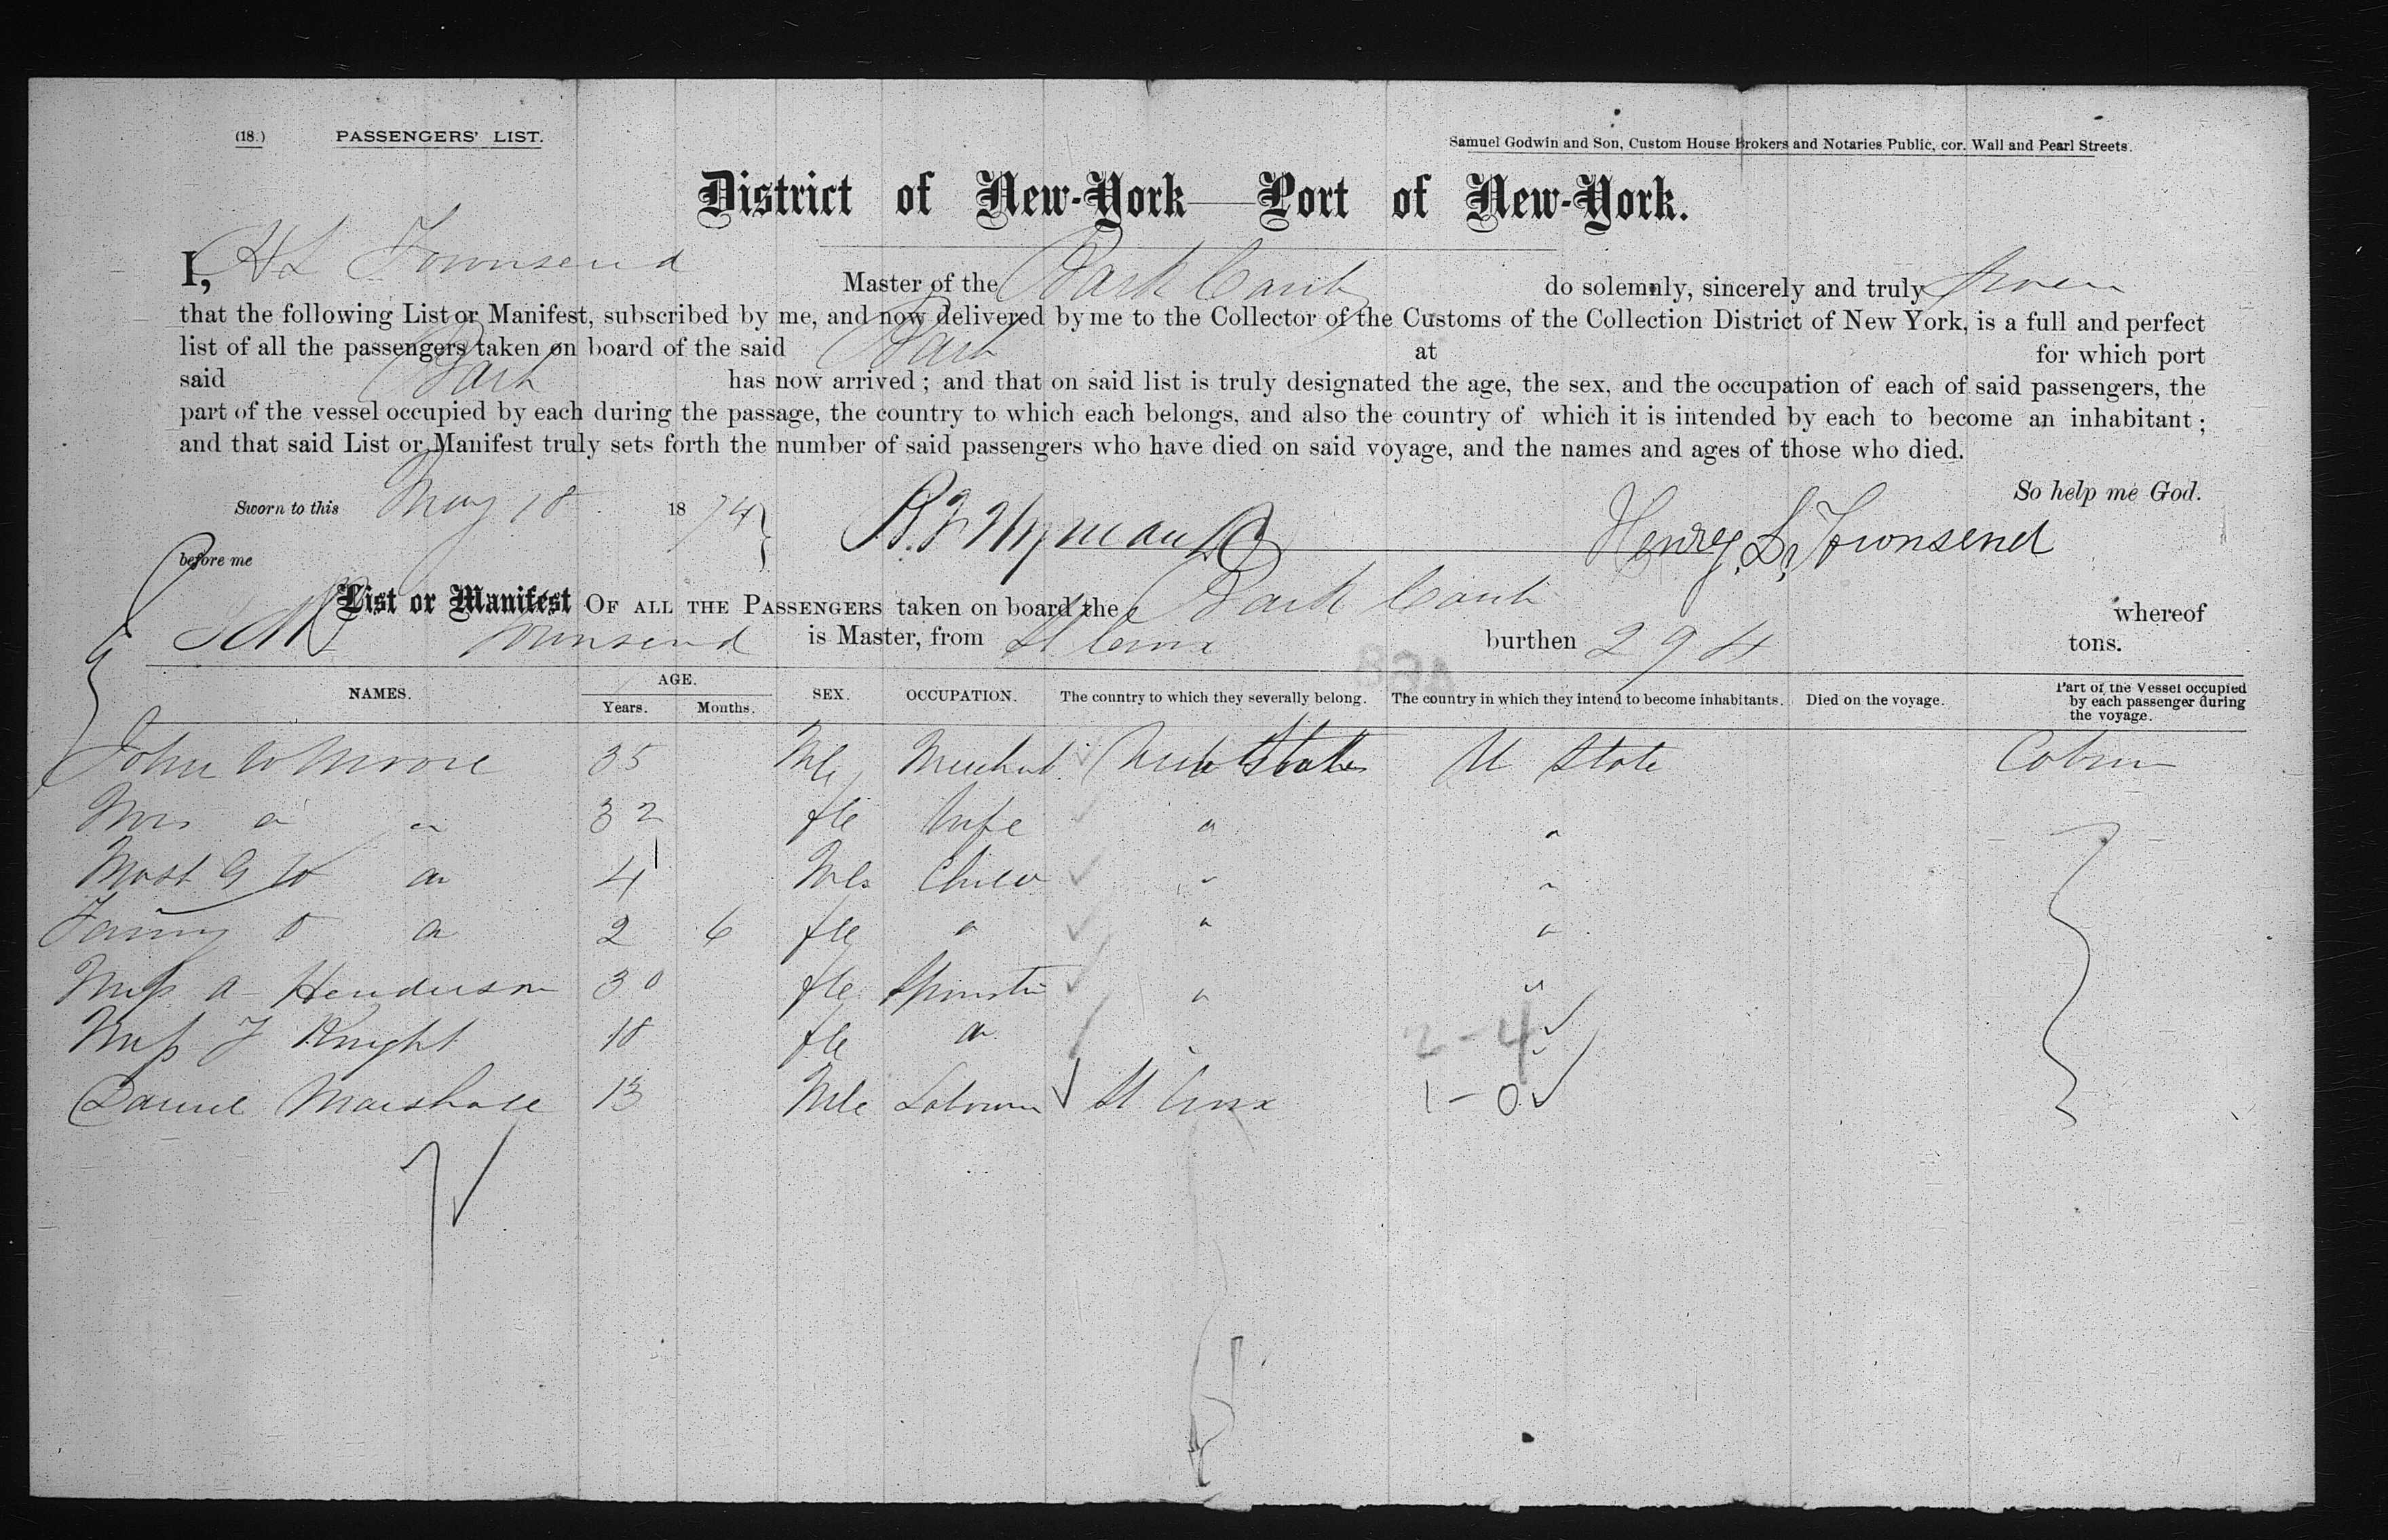 (18.) PASSENGERS' LIST. Samuel Godwin and Son, Custom House Brokers and Notaries Public, cor. Wall and Pearl Streets.
District of New-York—Port of New-York.
I, H L Townsend Master of the Bark do solemnly, sincerely and truly
that the following List or Manifest, subscribed by me, and now delivered by me to the Collector of the Customs of the Collection District of New York, is a full and perfect
list of all the passengers taken on board of the said Bark at for which port
said Bark has now arrived; and that on said list is truly designated the age, the sex, and the occupation of each of said passengers, the
part of the vessel occupied by each during the passage, the country to which each belongs, and also the country of which it is intended by each to become an inhabitant;
and that said List or Manifest truly sets forth the number of said passengers who have died on said voyage, and the names and ages of those who died.
So help me God.
Sworn to this May 18 1874 Henry L. Townsend
before me
List or Manifest OF ALL THE PASSENGERS taken on board the Bark whereof
Townsend is Master, from St Croix burthen 294 tons.
NAMES. AGE. Years. Months. SEX. OCCUPATION. The country to which they severally belong. The country in which they intend to become inhabitants. Died on the voyage. Part of the Vessel occupied by each passenger during the voyage.
John W Moore 35 Mle States U State
Mrs 32 fle Wife
Mast G W 4 Mle Child
Fanny 2 6 fle
Miss A Henderson 30 fle
Miss J Knight 18 fle 2-4
Daniel Marshall 13 Mle St Croix 1-0